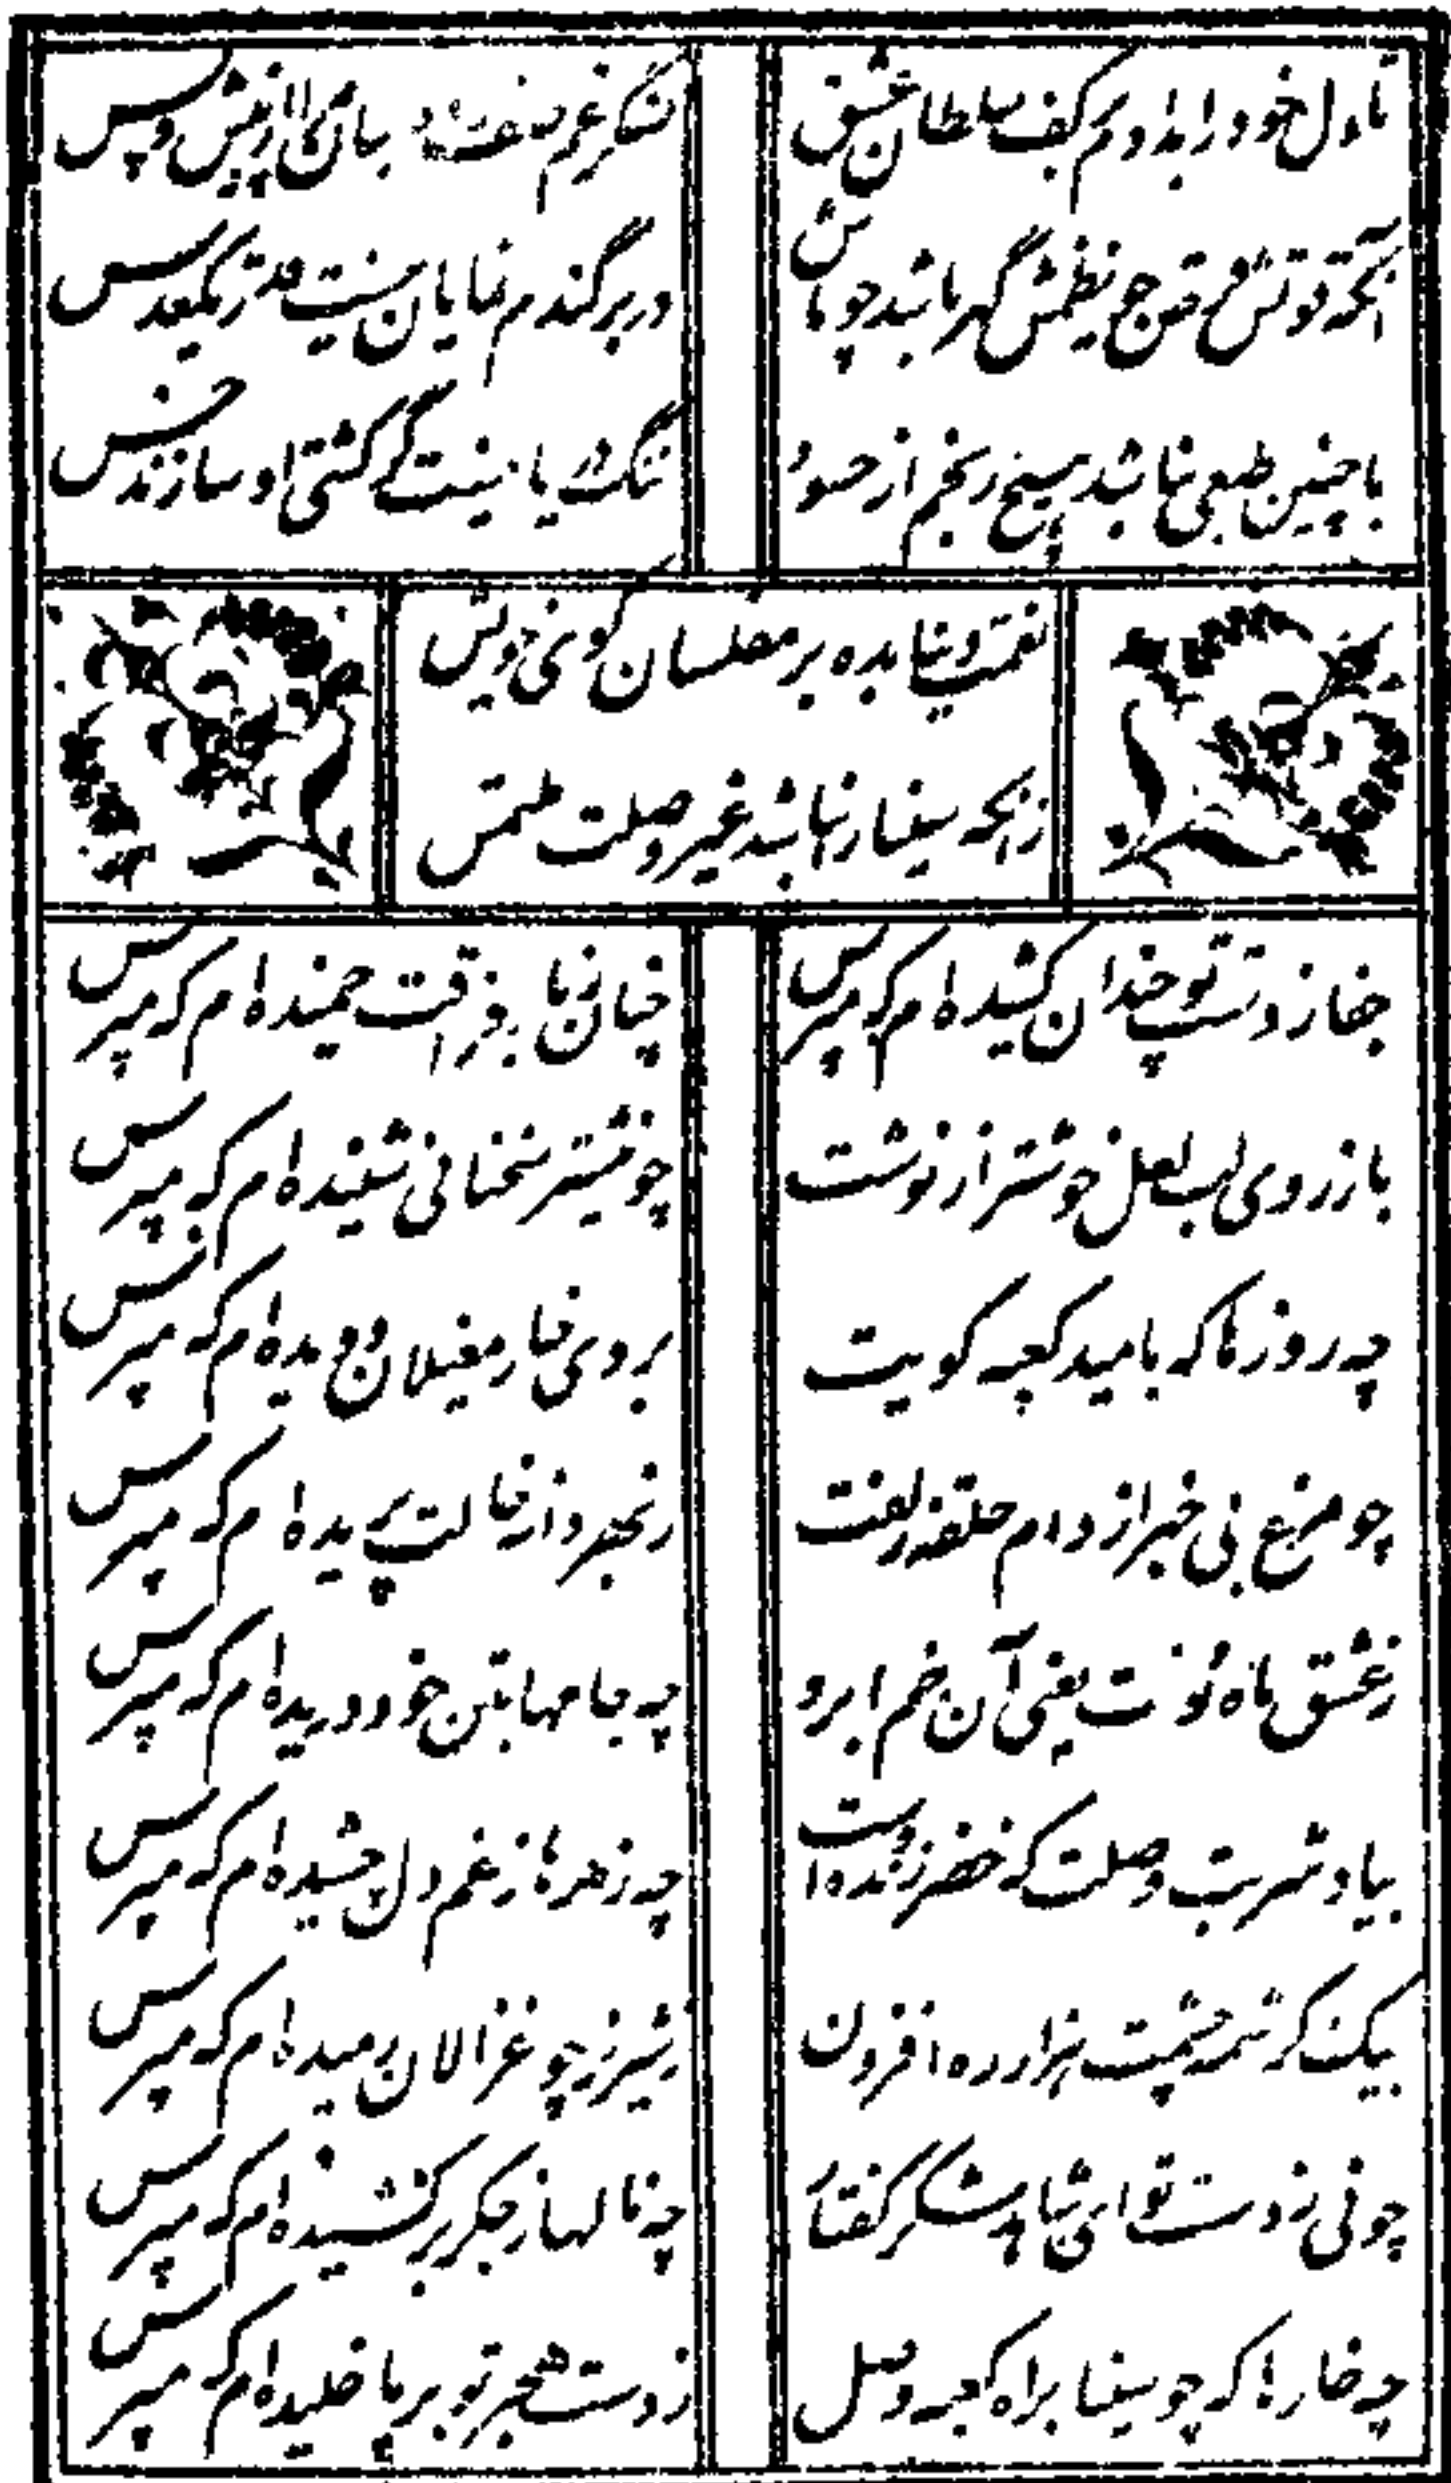 تا دل خود را بدادم کف سلطان عشق
لشکر غم صف‌زده بیان ما از پیش و پس
آنکه قوتش قوچ نظمش گر باشد چو ماش
در بر گندم نمایان نیست قدر یکعدس
با چنین طبعی نباشد هیچ رنجم از حسود
ننگ دریا نیست گر کشتی او سازند خس
نعمت دنیا بده بر مفلسان کوی خویش
زانکه سینا را نباشد غیر وصلت ملتمس
جفا ز دست تو چندان کشیده‌ام که مپرس
چنان ز بار فراقت خمیده‌ام که مپرس
بازروی لب لعل خوشتر از نوشت
چو نیشتر سخنانی شنیده‌ام که مپرس
چه روزها که بامید کعبه کویت
بروی خار مغیلان دویده‌ام که مپرس
چو مرغ بی خبر از دام حلقه زلفت
بهر دانه خالت پریده‌ام که مپرس
ز عشق ماه نوت یعنی آن خم ابرو
چه جامها بتن خود دریده‌ام که مپرس
بیاد شربت وصلت که خضر زنده از اوست
چه زهرها ز غم دل چشیده‌ام که مپرس
بیک کرشمه چشمت هزار ره افزون
ز شیر نر چو غزالان رمیده‌ام که مپرس
چونی ز دست تو ای شاهد شکر گفتار
چه نالها ز جگر برکشیده‌ام که مپرس
چه خارها که چو سینا براه کعبه وصل
ز دست هجر تو بر پا خلیده‌ام که مپرس